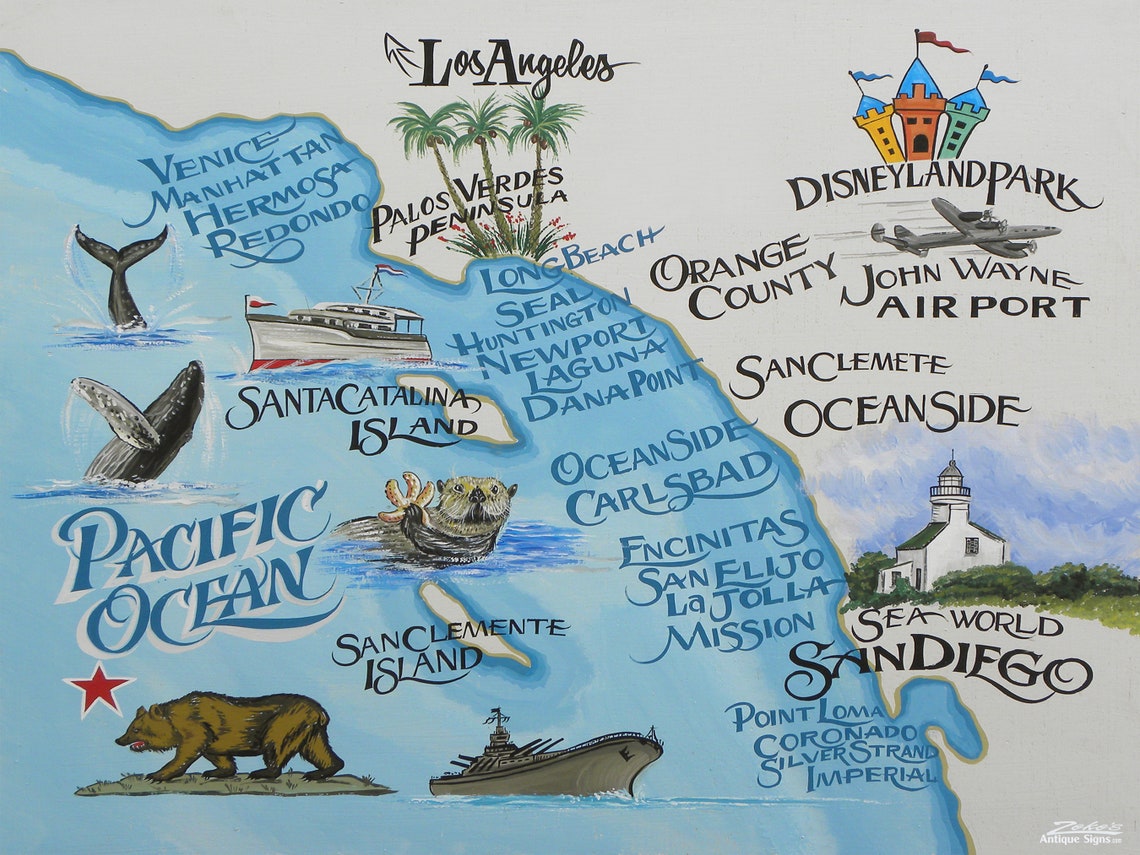 Los Angeles
VENICE
MANHATTAN
HERMOSA
REDONDO
PALOS VERDES
PENINSULA
DISNEYLAND PARK
ORANGE
COUNTY
JOHN WAYNE
AIRPORT
LONG BEACH
SEAL
HUNTINGTON
NEWPORT
LAGUNA
DANA POINT
SANTA CATALINA
ISLAND
SAN CLEMETE
OCEANSIDE
OCEANSIDE
CARLSBAD
PACIFIC
OCEAN
ENCINITAS
SAN ELIJO
La JOLLA
MISSION
SAN CLEMENTE
ISLAND
SEA WORLD
SAN DIEGO
POINT LOMA
CORONADO
SILVER STRAND
IMPERIAL
Zeke's
Antique Signs.com